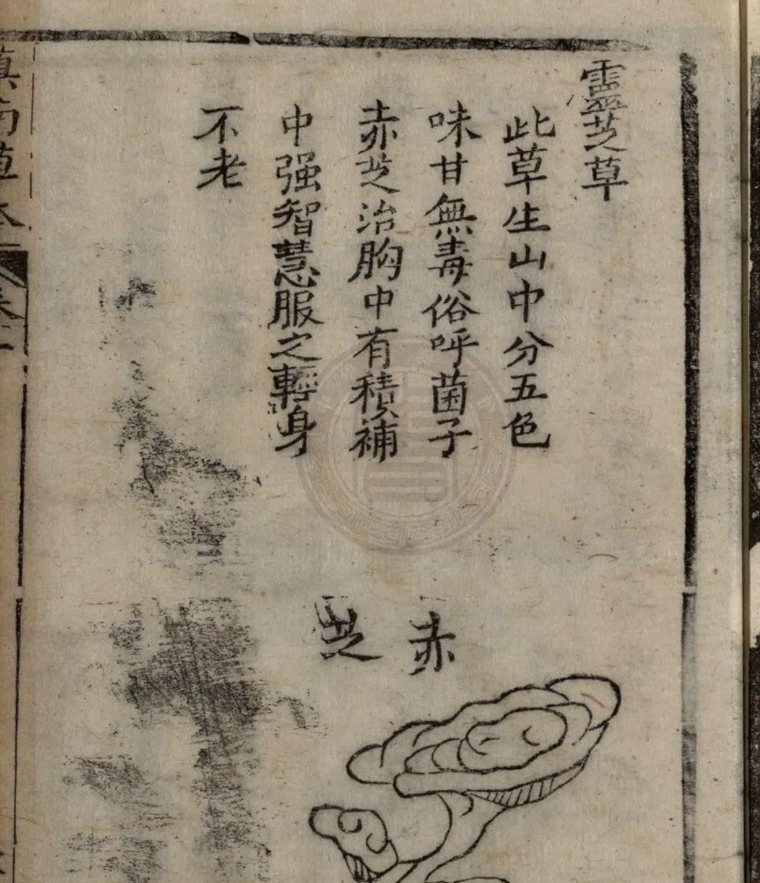 靈芝草
此草生山中分五色
味甘無毒俗呼菌子
赤芝治胸中有積補
中强智慧服之輕身
不老
赤芝
滇南草本
卷一